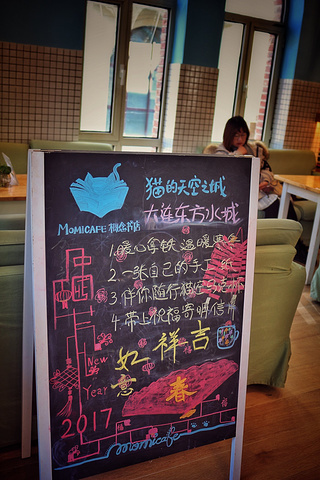 猫的天空之城
大连东方水城
MOMICAFE 概念书店
1.暖心拿铁 温暖
2.一张自己的手
3.伴你随行猫空马克杯
4.带上祝福寄明信片
吉祥如意
春
New
Year
2017
momicafe